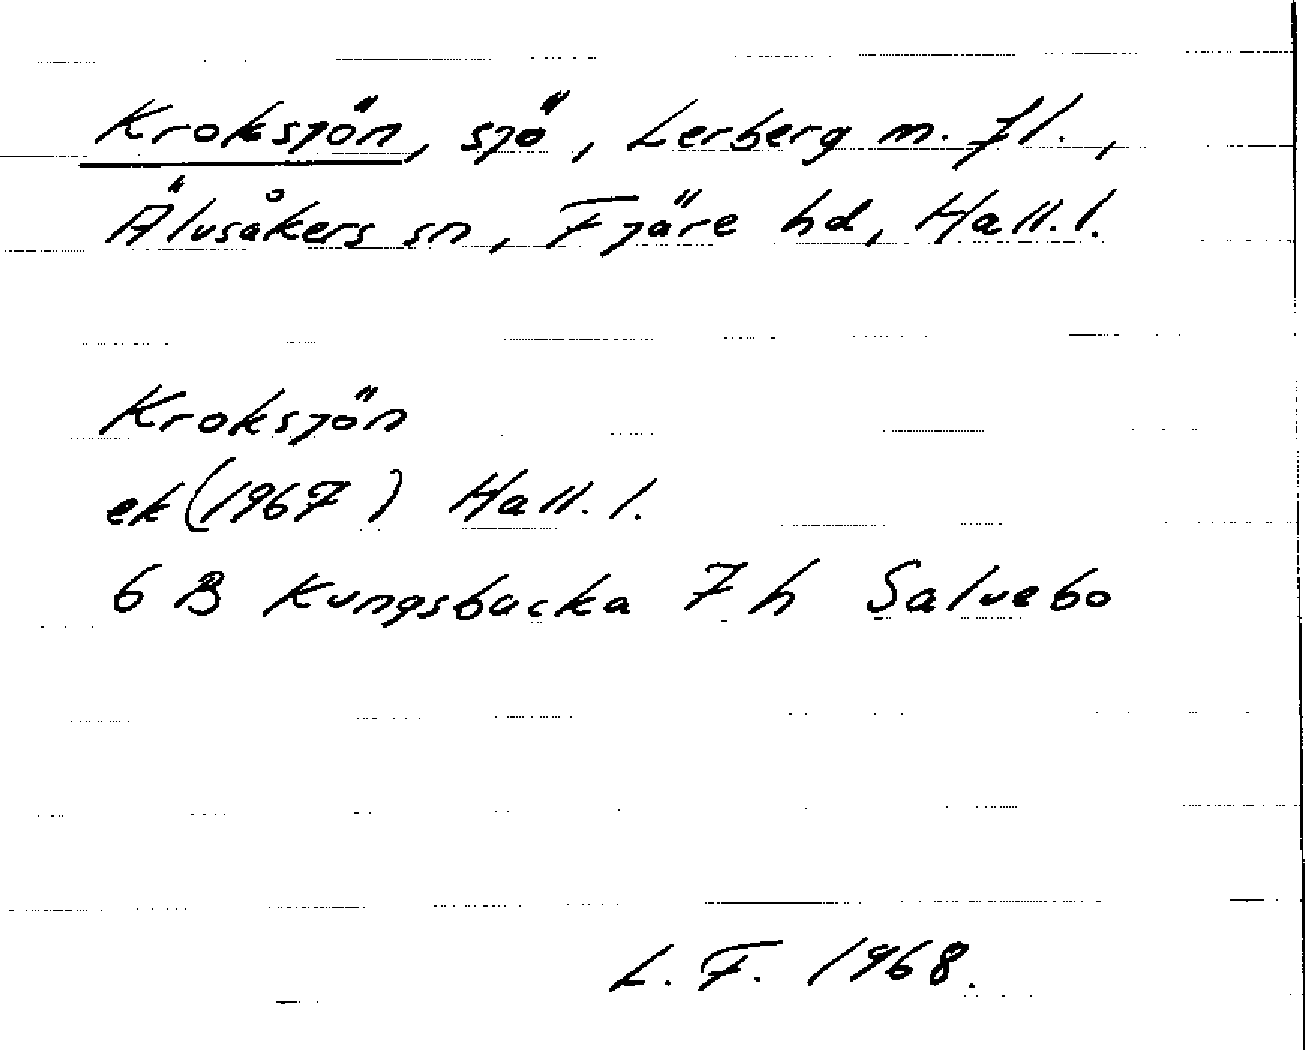 Kroksjön, sjö, Lerberg m. fl.,
Älvsåkers sn, Fjäre hd, Hall.l.
Kroksjön
ek (1967) Hall.l.
6 B Kungsbacka 7 h Salvebo
L. F. 1968.